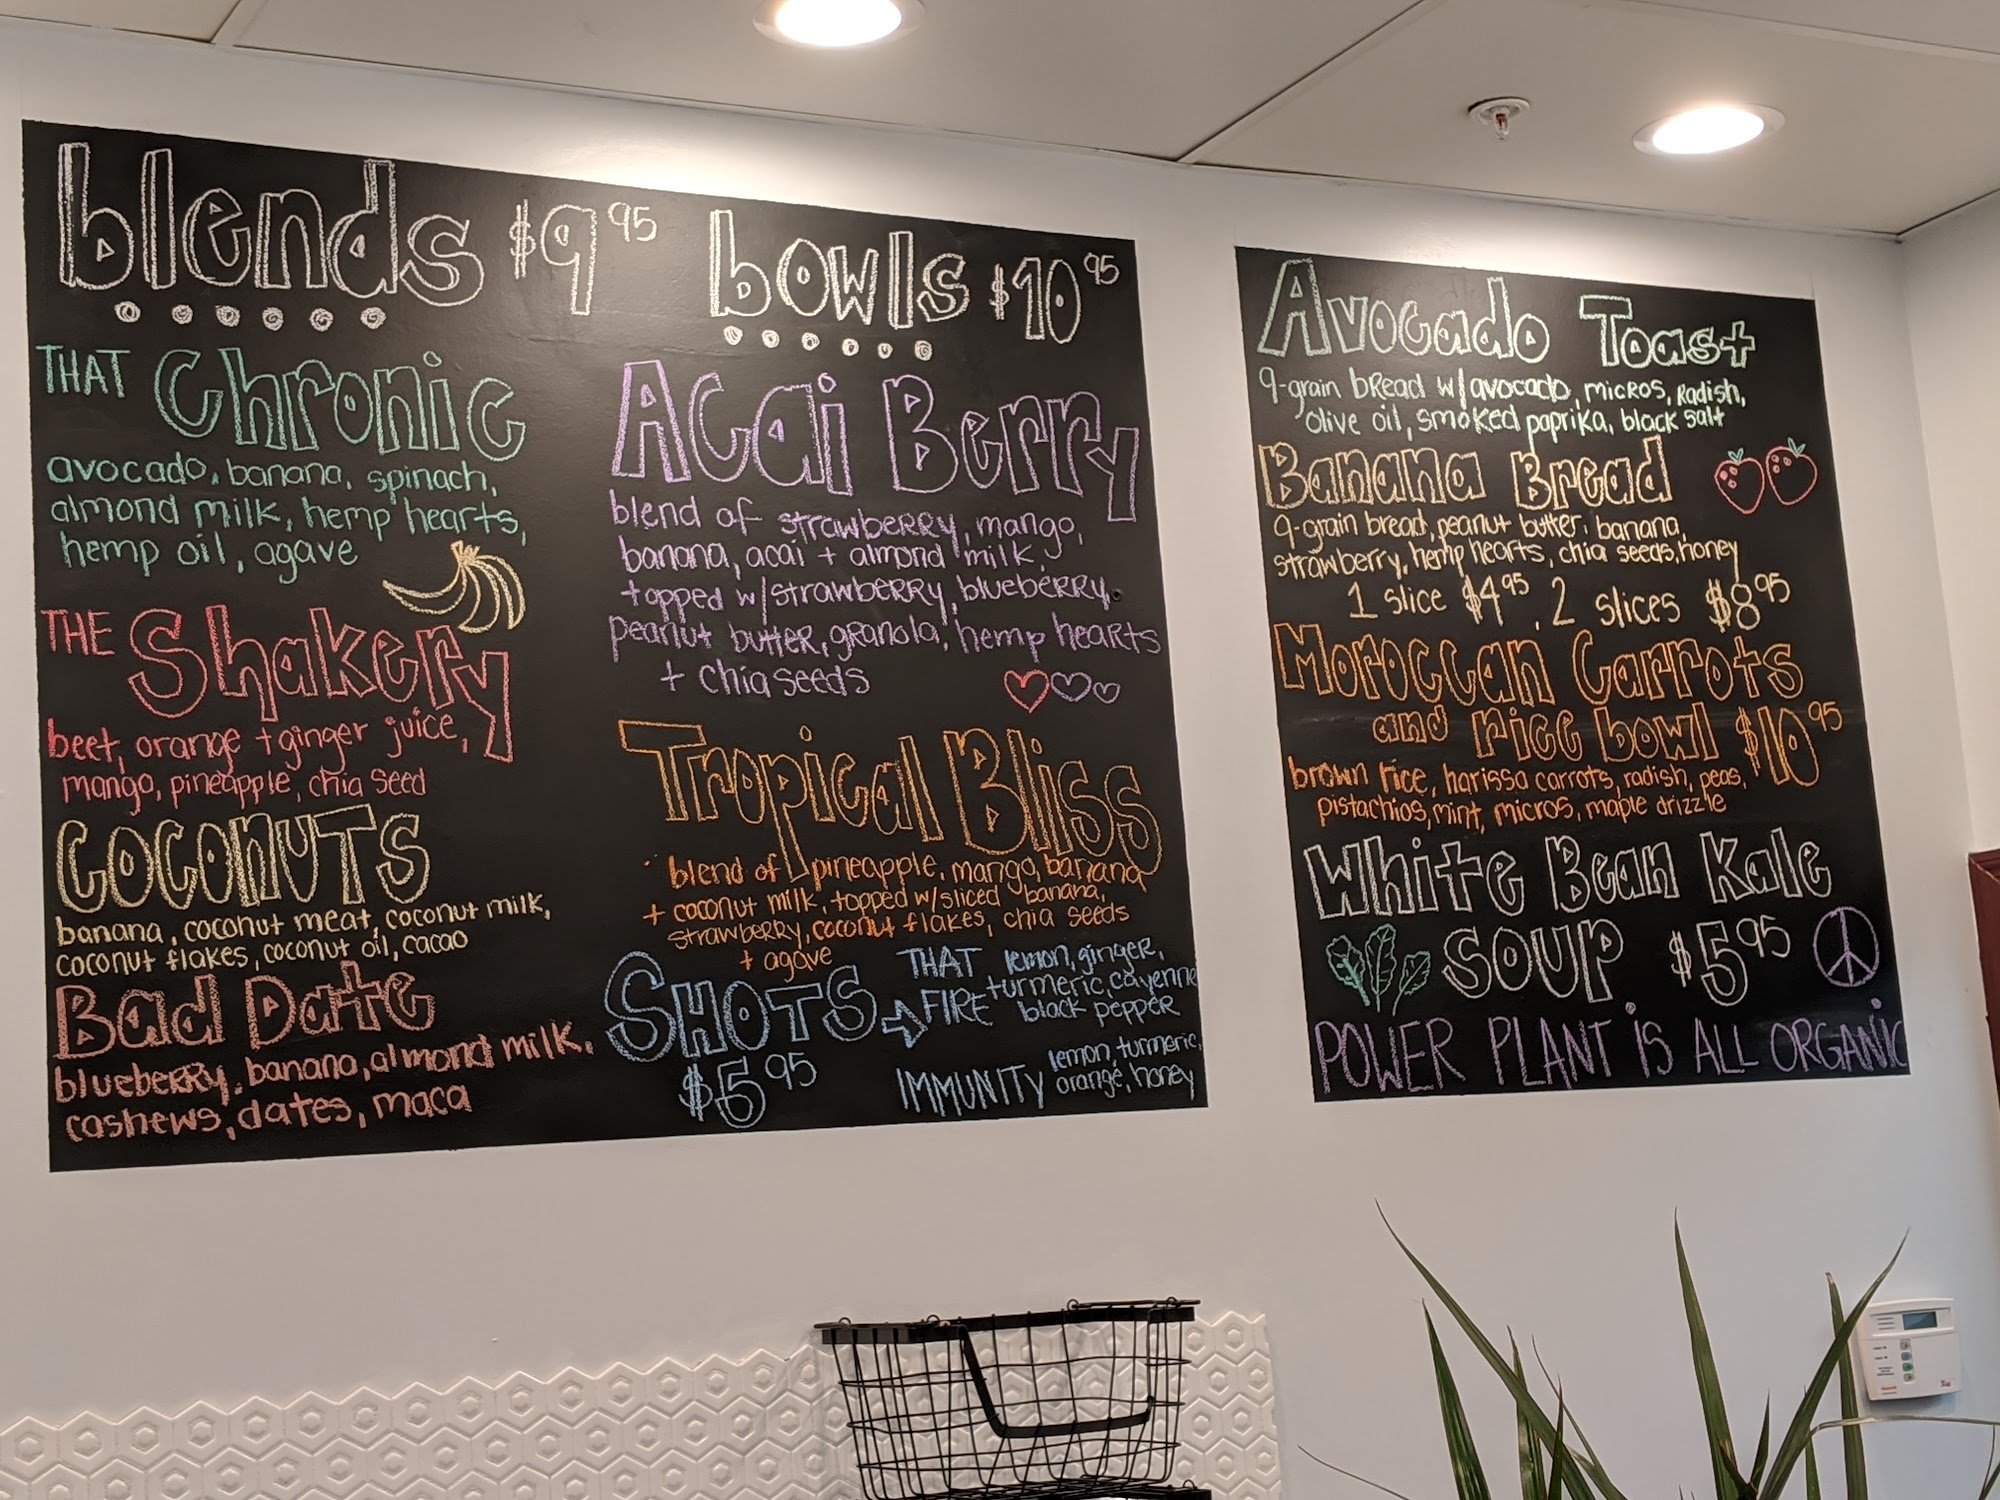 blends $9 95
THAT Chronic
avocado, banana, spinach,
almond milk, hemp hearts,
hemp oil, agave
THE Shakery
beet, orange + ginger juice,
mango, pineapple, chia seed
COCONUTS
banana, coconut meat, coconut milk,
coconut flakes, coconut oil, cacao
Bad Date
blueberry, banana, almond milk,
cashews, dates, maca
bowls $10 95
Acai Berry
blend of strawberry, mango,
banana, acai + almond milk,
topped w/strawberry, blueberry,
peanut butter, granola, hemp hearts
+ chia seeds
Tropical Bliss
blend of pineapple, mango, banana
+ coconut milk, topped w/sliced banana,
strawberry, coconut flakes, chia seeds
+ agave
SHOTS
$5 95
THAT FIRE
lemon, ginger,
turmeric, cayenne
black pepper
IMMUNITY
lemon, turmeric,
orange, honey
Avocado Toast
9-grain bread w/avocado, micros, radish,
olive oil, smoked paprika, black salt
Banana Bread
9-grain bread, peanut butter, banana,
strawberry, hemp hearts, chia seeds, honey
1 slice $4 95, 2 slices $8 95
Moroccan Carrots
and rice bowl $10 95
brown rice, harissa carrots, radish, peas,
pistachios, mint, micros, maple drizzle
White Bean Kale
SOUP $5 95
POWER PLANT iS ALL ORGANIC